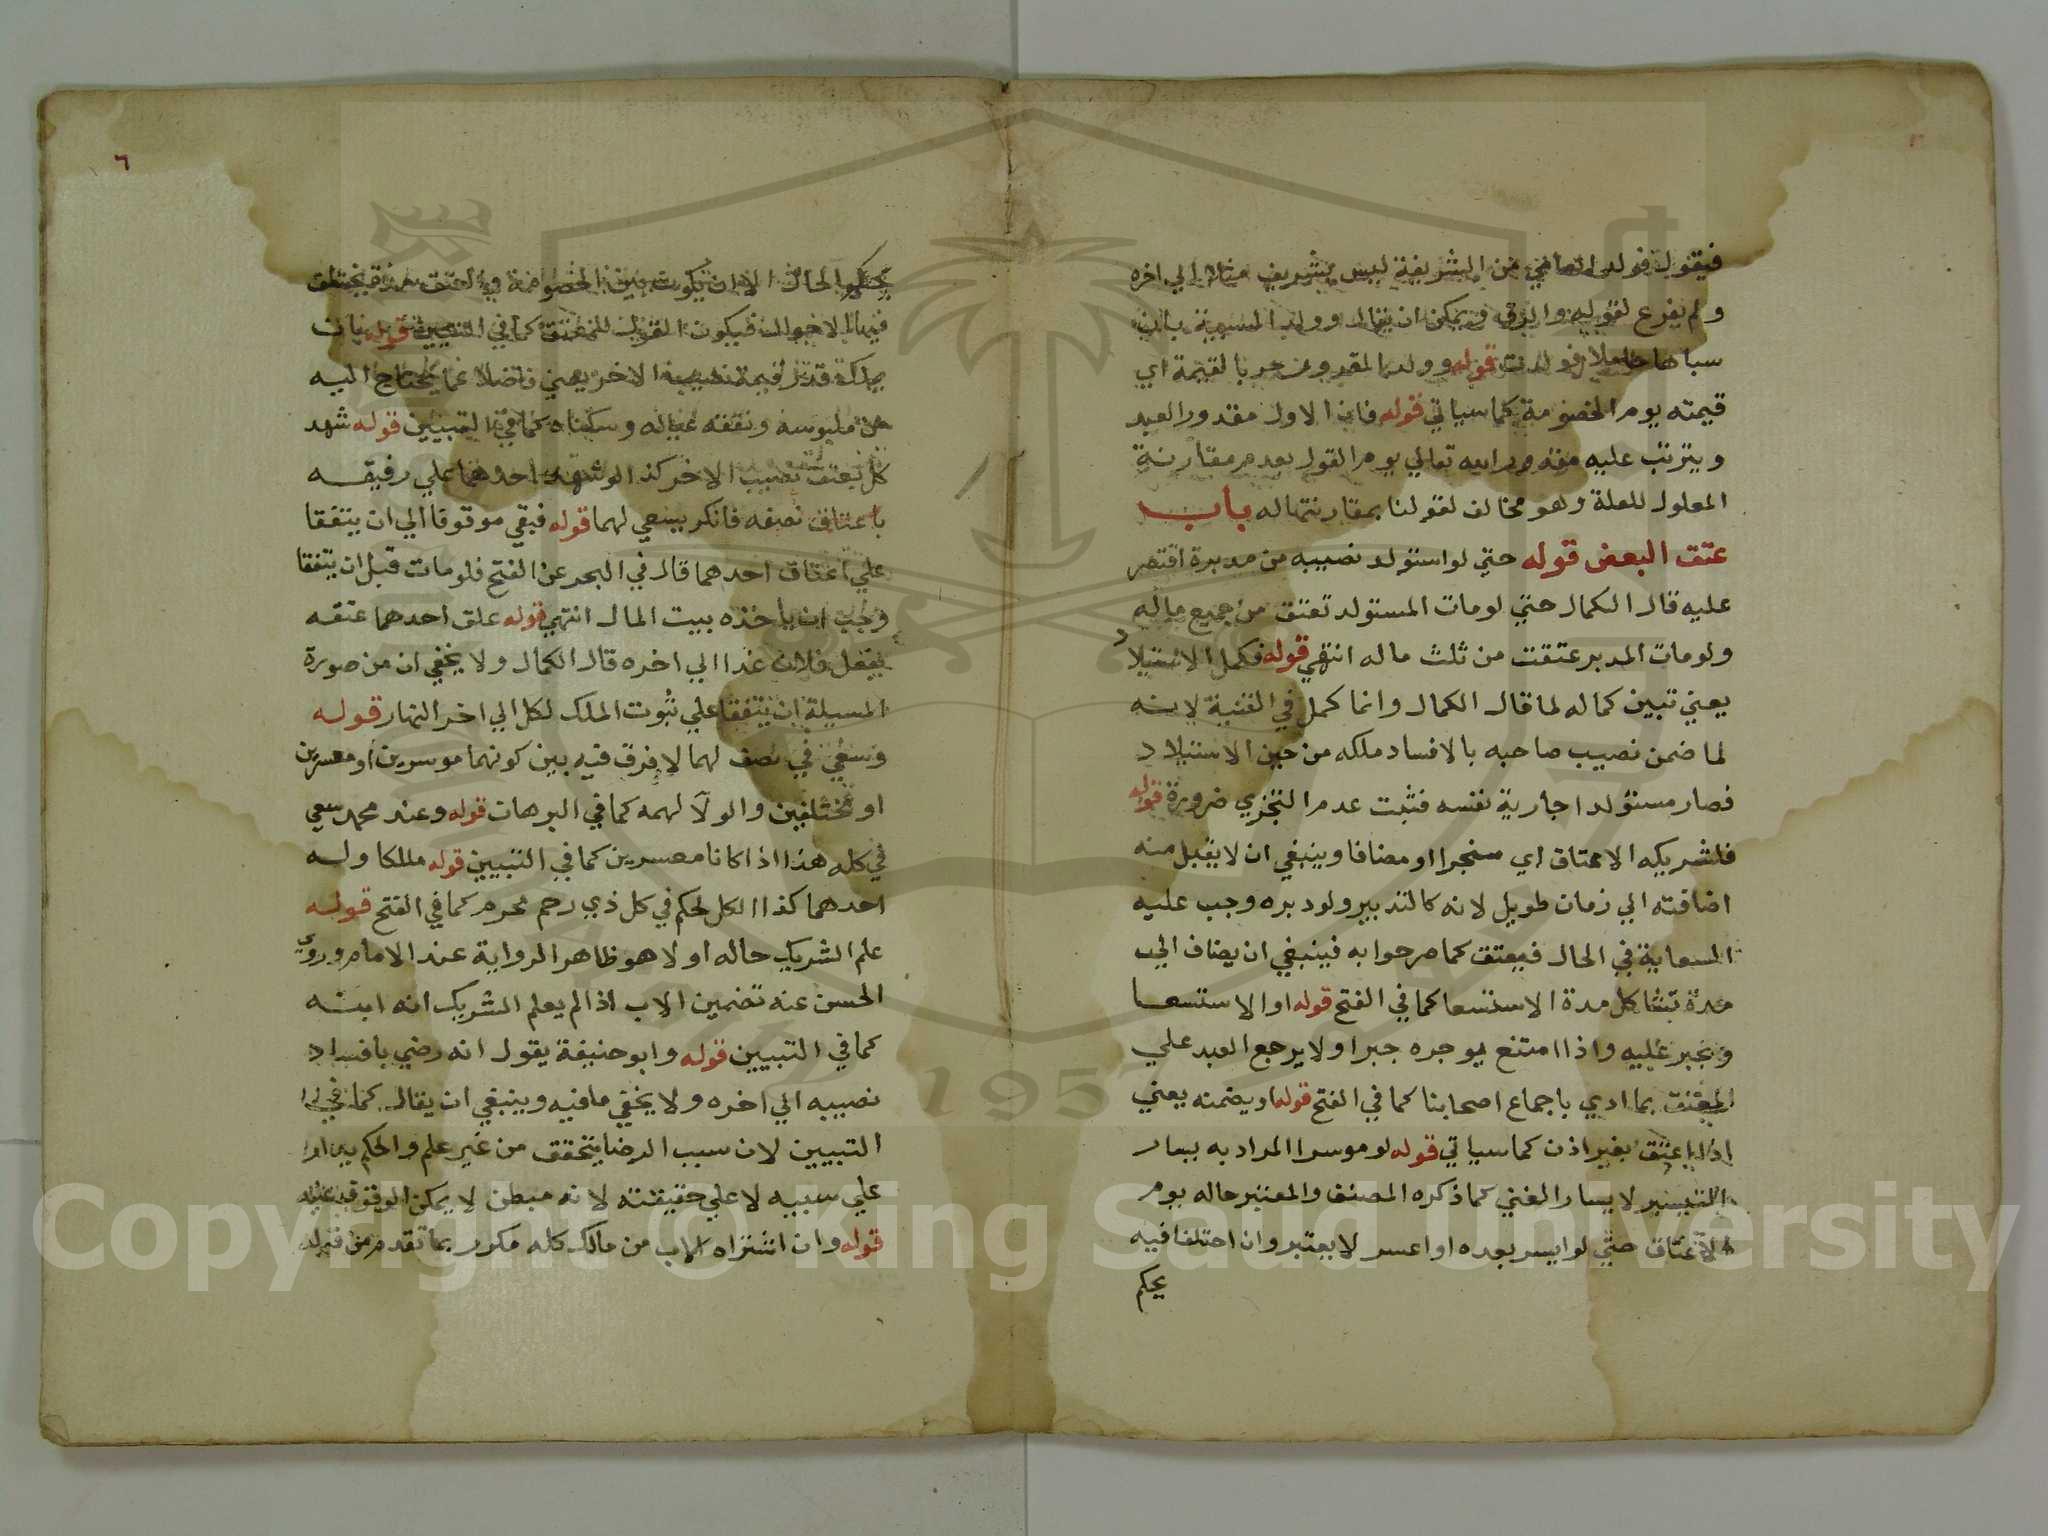 فيقول فولد العامي من الشريفة ليس بشريف مثلا الي اخره
ولم يفرع لقوله والرق ويمكن ان يقال وولد المسبية بان
سباها حاملا فولدت قوله وولد المغرور حر بالقيمة اي
قيمته يوم الخصومة كما سياتي قوله فان الاول مقدور العبد
ويترتب عليه مقدور الله تعالي يوم القول بعدم مقارنة
المعلول للعلة وهو مخالف لقولنا بمقارنتها له باب
عتق البعض قوله حتي لو استولد نصيبه من مدبرة اقتصر
عليه قال الكمال حتي لو مات المستولد تعتق من جميع ماله
ولو مات المدبر عتقت من ثلث ماله انتهي قوله فكمل الاستيلاد
يعني تبين كماله لما قال الكمال وانما كمل في القنية لانه
لما ضمن نصيب صاحبه بالافساد ملكه من حين الاستيلاد
فصار مستولدا جارية نفسه فثبت عدم التجزي ضرورة قوله
فلشريكه الاعتاق اي منجزا او مضافا وينبغي ان لا يقبل منه
اضافته الي زمان طويل لانه كالتدبير ولو دبره وجب عليه
السعاية في الحال فيعتق كما صرحوا به فينبغي ان يضاف الي
مدة تشاكل مدة الاستسعا كما في الفتح قوله او الاستسعا
ويجبر عليه واذا امتنع يوجره جبرا ولا يرجع العبد علي
المعتق بما ادي باجماع اصحابنا كما في الفتح قوله او يضمنه يعني
اذا اعتق بغير اذن كما سياتي قوله لو موسرا المراد به يسار
التيسير لا يسار الغني كما ذكره المصنف والمعتبر حاله يوم
الاعتاق حتي لو ايسر بعده او اعسر لا يعتبر وان اختلفا فيه
يحكم
٦
يحكم الحال الا ان يكون بين الخصومة والعتق مدة يختلف
فيها الاحوال فيكون القول للمعتق كما في التبيين قوله بان
يملك قدر قيمة نصيب الاخر يعني فاضلا عما يحتاج اليه
من ملبوسه ونفقة عياله وسكناه كما في التبيين قوله شهد
كل بعتق نصيب الاخر كذا لو شهد احدهما علي رفيقه
باعتاق نصفه فانكر يسعي لهما قوله فبقي موقوفا الي ان يتفقا
علي اعتاق احدهما قال في البحر عن الفتح فلو مات قبل ان يتفقا
وجب ان ياخذه بيت المال انتهي قوله علق احدهما عتقه
بفعل فلان غدا الي اخره قال الكمال ولا يخفي ان من صورة
المسيلة ان يتفقا علي ثبوت الملك لكل الي اخر النهار قوله
وسعي في نصف لهما لا فرق فيه بين كونهما موسرين او معسرين
او مختلفين والولا لهمه كما في البرهان قوله وعند محمد سعي
في كله هذا اذا كانا معسرين كما في التبيين قوله ملكا ولد
احدهما كذا الكل لحكم في كل ذي رحم محرم كما في الفتح قوله
علم الشريك حاله اولا هو ظاهر الرواية عند الامام وروي
الحسن عنه تضمين الاب اذا لم يعلم الشريك انه ابنه
كما في التبيين قوله وابو حنيفة يقول انه رضي بافساد
نصيبه الي اخره ولا يخفي ما فيه وينبغي ان يقال كما في
التبيين لان سبب الرضا يتحقق من غير علم والحكم يدار
علي سببه لا علي حقيقته لانه مبطن لا يمكن الوقوف عليه
قوله وان اشتراه الاب من مالك كله مكرر بما تقدم من قبله
Copyright © King Saud University
1957